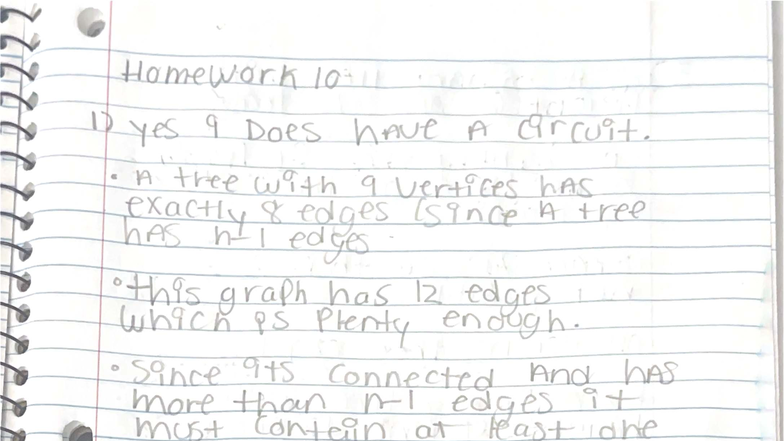 Homework 10
1) yes 9 Does have A circuit.
• A tree with 9 vertices has
exactly 8 edges (since A tree
has n-1 edges
• this graph has 12 edges
which is plenty enough.
• Since its connected And has
more than n-1 edges it
must contain at least one